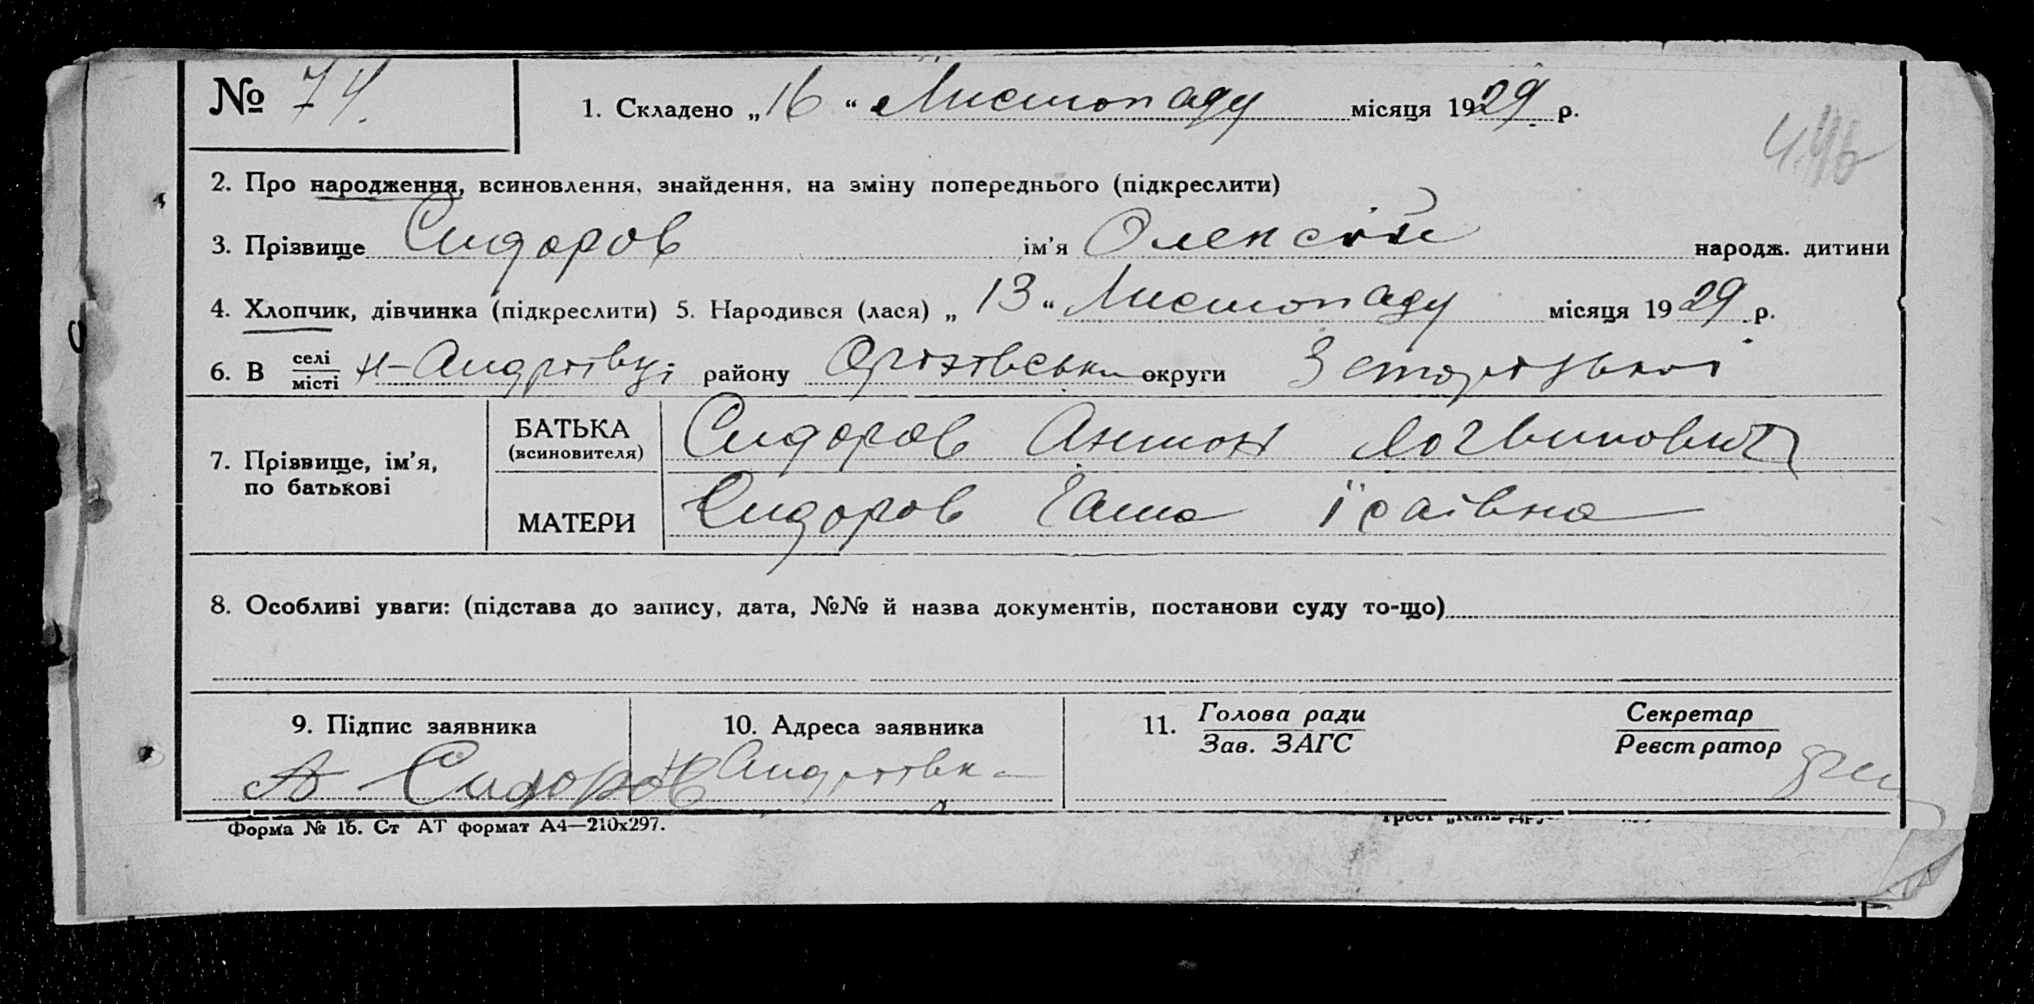 № 74.
1. Складено „16“ Листопаду місяця 1929 р.
2. Про народження, всиновлення, знайдення, на зміну попереднього (підкреслити)
3. Прізвище Сидоров ім’я Олексій народж. дитини
4. Хлопчик, дівчинка (підкреслити) 5. Народився (лася) „13“ Листопаду місяця 1929 р.
6. В селі/місті Н-Андрівці району Оріхівськ округи
7. Прізвище, ім’я, по батькові
БАТЬКА (всиновителя) Сидоров Антон Логвинович
МАТЕРИ Сидоров Ісаівна
8. Особливі уваги: (підстава до запису, дата, №№ й назва документів, постанови суду то-що)
9. Підпис заявника 10. Адреса заявника 11. Голова ради/Зав. ЗАГС Секретар/Реєстратор
А Сидоров Н Андрівка
Форма № 16. Ст АТ формат А4—210х297.